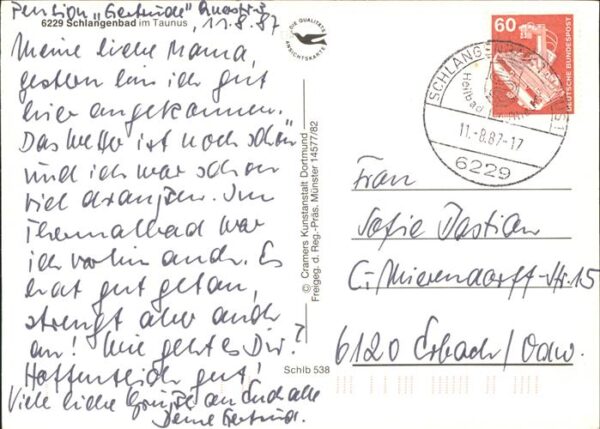 Pension „Gertrude"
11.8.87
6229 Schlangenbad im Taunus
Meine liebe Mama,
gestern bin ich gut
hier angekommen.
Das Wetter ist noch schön
und ich war schon
viel draußen. Im
Thermalbad war
ich vorhin auch. Es
hat gut getan,
strengt aber auch
an! Wie geht es Dir?
Hoffentlich gut!
Viele liebe Grüße an Euch alle
Deine Gertrud.
DIE QUALITÄTS
ANSICHTSKARTE
© Cramers Kunstanstalt Dortmund
Freigeg. d. Reg.-Präs. Münster 14577/82
Schlb 538
60
DEUTSCHE BUNDESPOST
SCHLANGENBAD
Heilbad
11.-8.87-17
6229
Frau
Sofie Bastian
C.-Mierendorff-Str. 15
6120 Erbach/Odw.